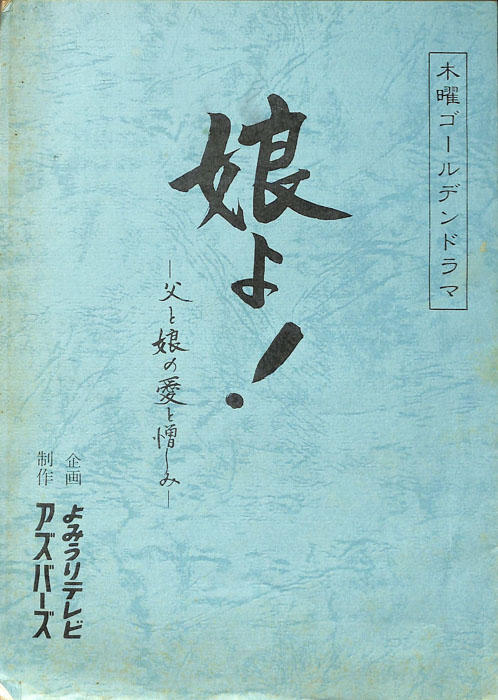 木曜ゴールデンドラマ
娘よ!
―父と娘の愛と憎しみ―
企画 よみうりテレビ
制作 アズバーズ